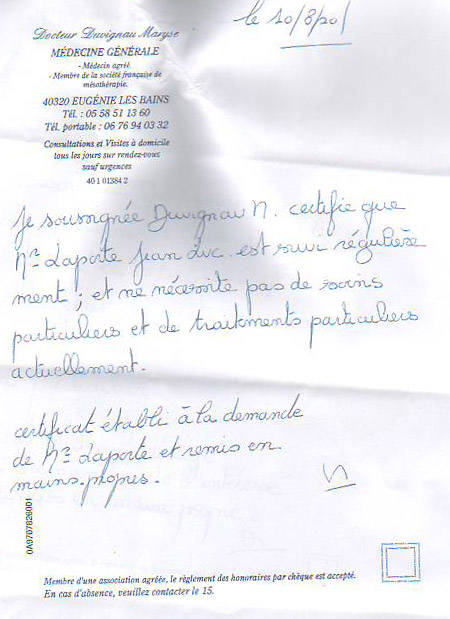 le 10/8/201
Docteur Duvignau Maryse
MÉDECINE GÉNÉRALE
- Médecin agréé
- Membre de la société française de
mésothérapie.
40320 EUGÉNIE LES BAINS
Tél. : 05 58 51 13 60
Tél. portable : 06 76 94 03 32
Consultations et Visites à domicile
tous les jours sur rendez-vous
sauf urgences
40 1 01384 2
Je soussignée Duvignau M. certifie que
Mr Laporte Jean Luc. est suivi régulière
ment ; et ne nécessite pas de soins
particuliers et de traitments particuliers
actuellement.
certificat établi à la demande
de Mr Laporte et remis en
mains propres.
0A9707826001
Membre d'une association agréée, le règlement des honoraires par chèque est accepté.
En cas d'absence, veuillez contacter le 15.